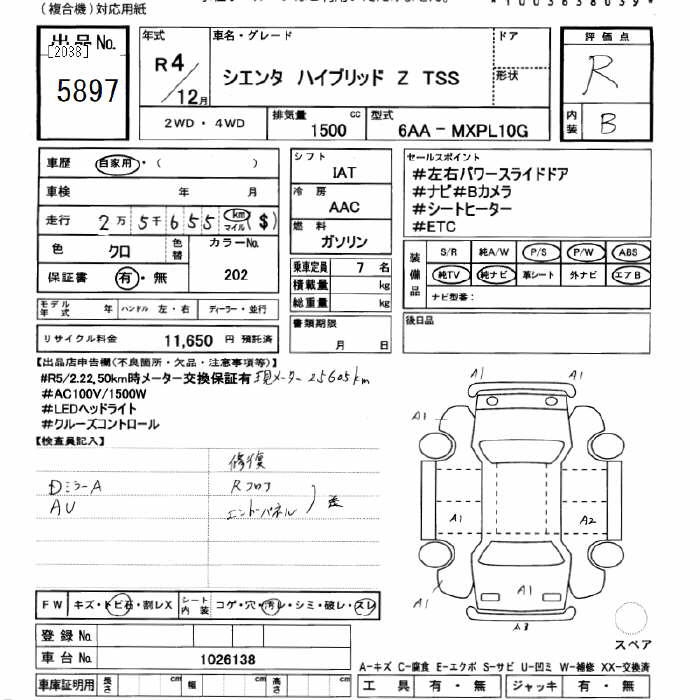 (複合機)対応用紙
*1003638039*
出品No.
[2038]
5897
年式
R4/12月
車名・グレード
シエンタ ハイブリッド Z TSS
ドア
形状
評価点
R
内装
B
2WD・4WD
排気量
1500
cc
型式
6AA-MXPL10G
車歴
自家用・( )
車検 年 月
走行 2万5千655 km マイル ($)
色
クロ
色替
カラーNo.
202
保証書
有・無
モデル年式 年 ハンドル 左・右 ディーラー・並行
リサイクル料金 11,650 円 預託済
シフト
IAT
冷房
AAC
燃料
ガソリン
乗車定員 7 名
積載量 kg
総重量 kg
書類期限
月 日
セールスポイント
#左右パワースライドドア
#ナビ#Bカメラ
#シートヒーター
#ETC
装備品
S/R 純A/W P/S P/W ABS
純TV 純ナビ 革シート 外ナビ エアB
ナビ型番:
後日品
【出品店申告欄(不良箇所・欠品・注意事項等)】
#R5/2.22,50km時メーター交換保証有 現メーター25605km
#AC100V/1500W
#LEDヘッドライト
#クルーズコントロール
【検査員記入】
修復
DミラーA
Rフロア
AU
エンドパネル
差
A1 A1
A1
A1
A2
A1
A1
A3
スペア
FW キズ・トビ石・割レX
シート内装 コゲ・穴・汚レ・シミ・破レ・スレ
登録No.
車台No. 1026138
車庫証明用 長さ cm 幅 cm 高さ cm
A-キズ C-腐食 E-エクボ S-サビ U-凹ミ W-補修 XX-交換済
工具 有・無 ジャッキ 有・無